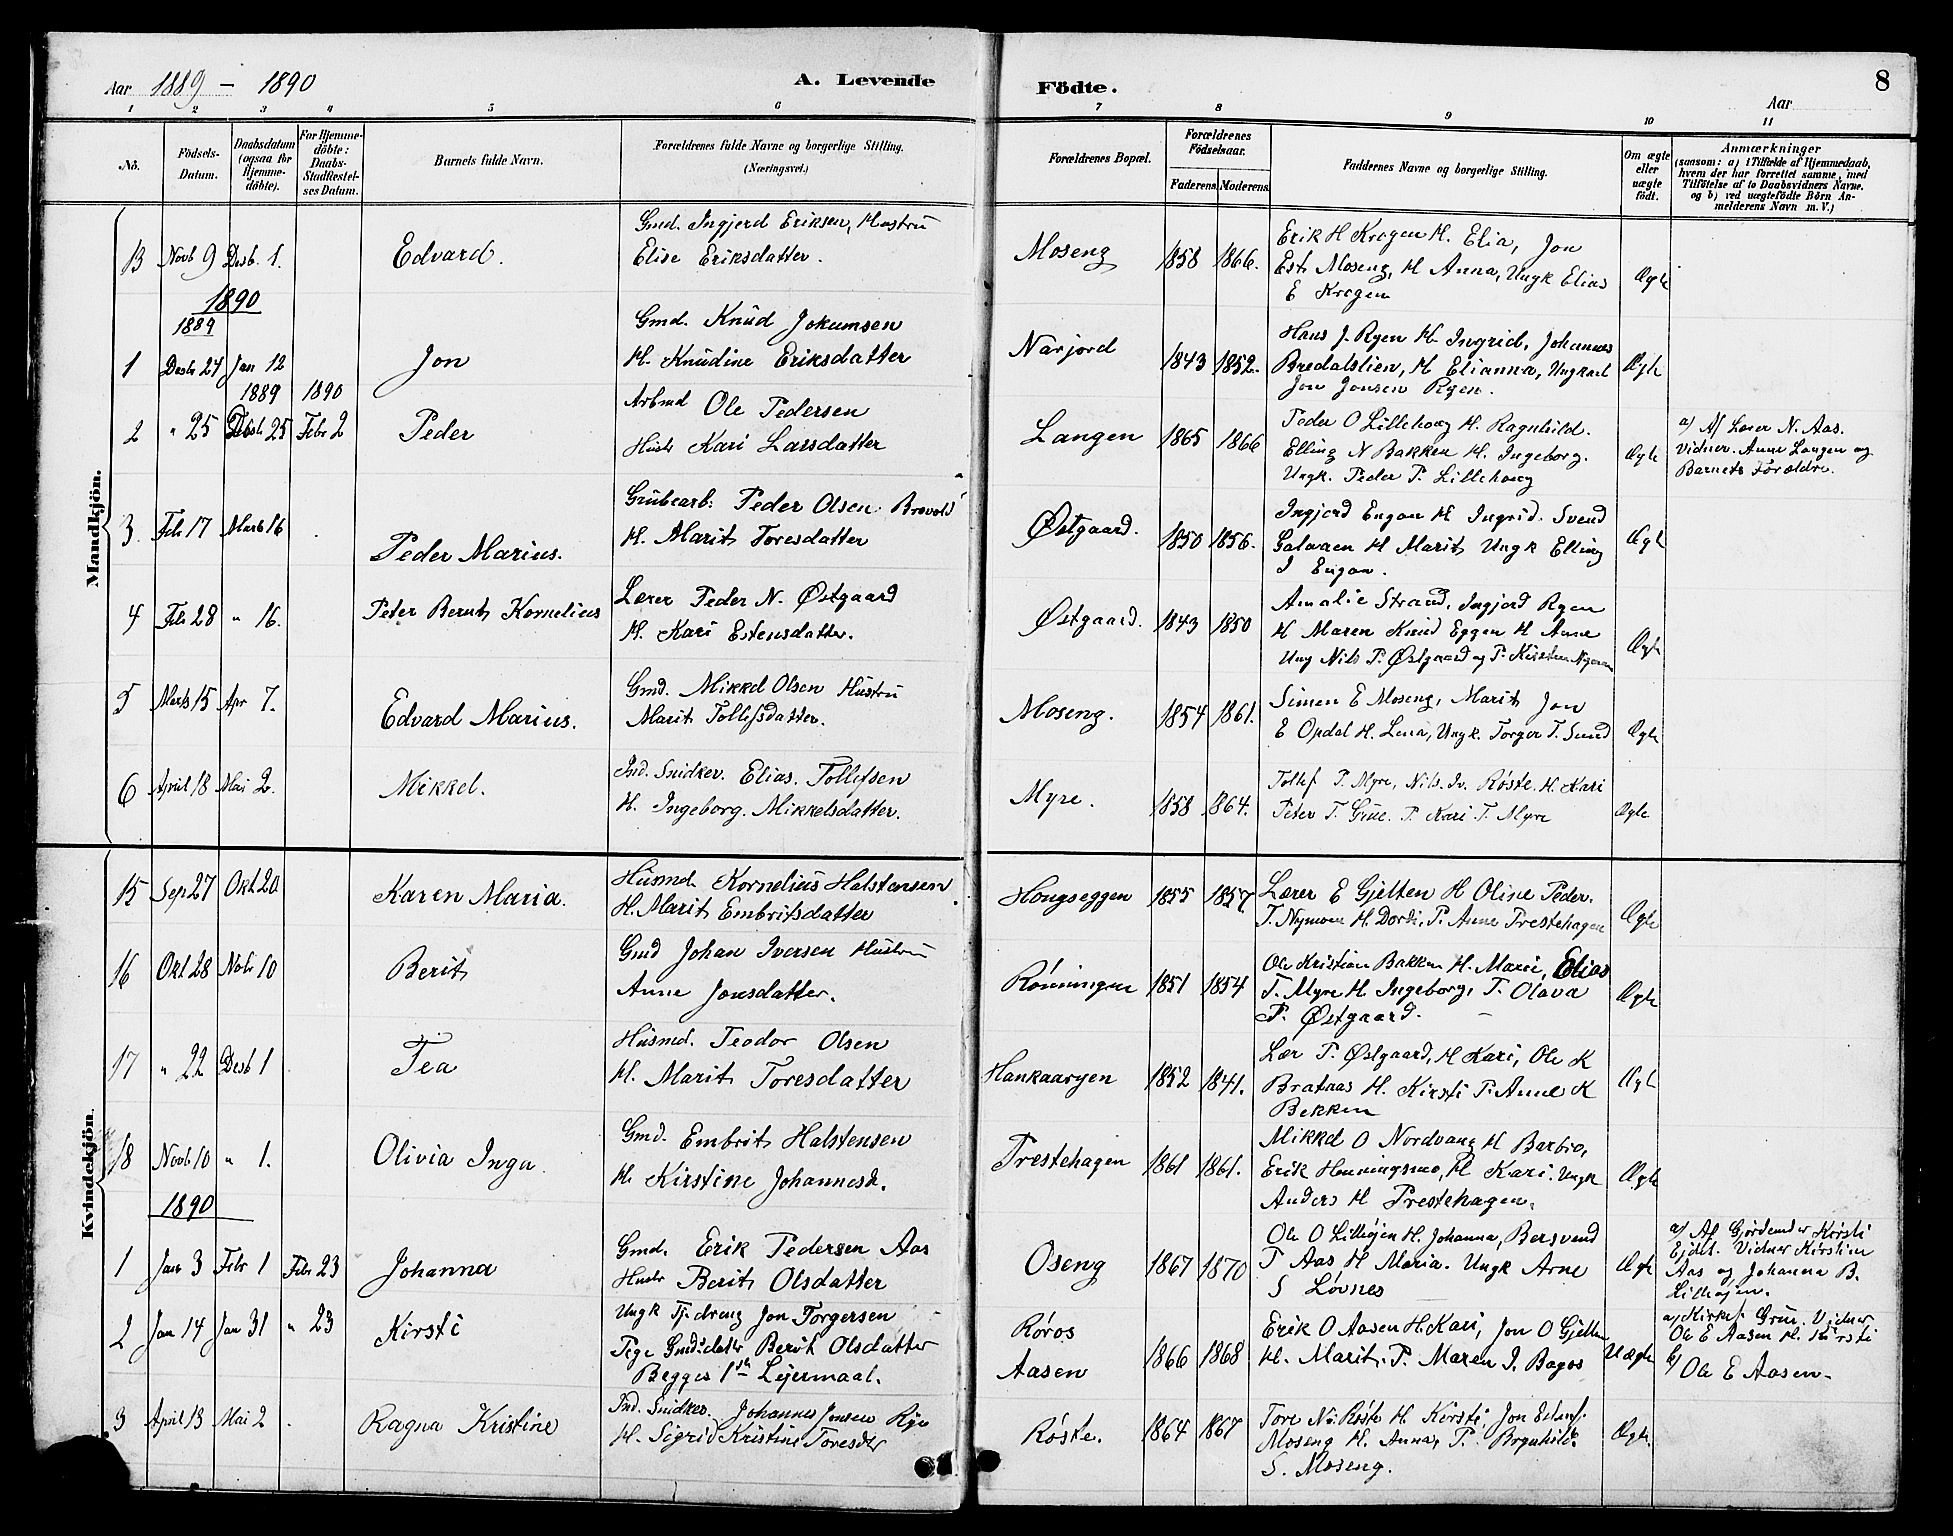 Aar 1889 – 1890
A. Levende
Födte.
Aar
8
1 2 3 4 5 6 7 8 9 10 11
No.
Födsels-Datum.
Daabsdatum (ogsaa for Hjemme-döbte).
For Hjemme-döbte: Daabs-Stadfæstel-ses Datum.
Barnets fulde Navn.
Forældrenes fulde Navne og borgerlige Stilling.
(Næringsvei.)
Forældrenes Bopæl.
Forældrenes Födselsaar.
Faderens. Moderens.
Faddernes Navne og borgerlige Stilling.
Om ægte eller uægte födt.
Anmærkninger
(saasom: a) i Tilfælde af Hjemmedaab, hvem der har forrettet samme, med Tilföielse af to Daabsvidners Navne. og b) ved uægtefödte Börn Anmelderens Navn m. V.)
Mandkjön.
13 Novb 9 Desb. 1. Edvard.
Gmd. Ingjerd Eriksen, Hustru
Elise Eriksdatter.
Moseng 1858 1866.
Erik H Krogen H. Elia, Jon
Est. Moseng, H Anna, Ungk Elias
E Krogen
Ægte
1890
1889
1 Desb 24 Jan 12 Jon
Gmd. Knud Jokumsen
H. Knudine Eriksdatter
Narjord 1843 1852.
Hans J. Ryen H. Ingrid, Johannes
Bredalslien, H Elianna, Ungkarl
Jon Jonsen Ryen.
Ægte
1889 1890
2 " 25 Desb 25 Febr 2 Peder
Arbmd Ole Pedersen
Hustr Kari Larsdatter
Langen 1865 1866
Peder O Lillehoug H. Ragnhild.
Elling N Bakken H. Ingeborg.
Ungk. Peder P. Lillehoug
Ægte
a/ Af Lærer N. Aas.
Vidner. Anne Langen og
Barnets Forældre.
3 Febr 17 Marts 16 Peder Marius.
Grubearb: Peder Olsen
H. Marit Toresdatter
Østgaard. 1850 1856.
Ingjerd Engan H Ingrid. Svend
Galaaen H Marit Ungk Elling
I Engan.
Ægte
4 Febr 28 " 16. Peter Bernt Kornelius
Lærer Peder N. Østgaard
H. Kari Estensdatter.
Østgaard. 1843 1850
Amalie Strand, Ingjerd Ryen
H Maren Knud Eggen H Anne
Ung Nils P. Østgaard og P. Kirsten
Ægte
5 Marts 15 Apr 7. Edvard Marius.
Gmd. Mikkel Olsen Hustru
Marit Tollefsdatter.
Moseng. 1854 1861.
Simen E Moseng, Marit Jon
E Opdal H. Lena, Ungk. Torger T. Sund
Ægte
6 April 18 Mai 2. Mikkel.
Ind. Snidker. Elias. Tollefsen
H. Ingeborg. Mikkelsdatter.
Myre. 1858 1864.
Tollef P. Myre, Nils. Iv. Røste. H. Kari
Peter T. Grue. P. Kari T. Myre
Ægte
Kvindekjön.
15 Sep 27 Okt 20 Karen Maria.
Husmd. Kornelius Halstensen
H. Marit Embritsdatter
Hougseggen 1855 1857
Lærer E Gjelten H Oline Peder.
T. Nymoen H Dordi, P. Anne Prestehagen
Ægte
16 Okt 28 Novbr 10 Berit
Gmd Johan Iversen Hustru
Anne Jonsdatter.
Rønningen 1851 1854
Ole Kristian Bakken H. Marie, Elias
T. Myre H Ingeborg, P. Olava
P. Østgaard.
Ægte
17 " 22 Desb 1 Tea
Husmd. Teodor Olsen
H. Marit Toresdatter
1852 1841.
Lær P. Østgaard, H Kari, Ole K
Brataas H. Kirsti P. Anne K
Bekken
Ægte
18 Novb 10 " 1. Olivia Inga
Gmd. Embrit Halstensen
H. Kirstine Johannesd.
Prestehagen 1861 1861.
Mikkel O Nordvang H Barbro,
Erik Henningsmo, H Kari. Ungk
Anders H Prestehagen.
Ægte
1890
1 Jan 3 Febr 1 Febr 23 Johanna
Gmd. Erik Pedersen Aas
Hustr Berit Olsdatter
Oseng 1867 1870
Ole O Lilløjen H. Johanna, Bersvend
P Aas H Maria. Ungk Arne
S Løvnes
Ægte
a/ Af Gjordemoder Kirsti
Vidner Kirstien
Aas og Johanna B.
Lilløjen.
2 Jan 14 Jan 31 " 23 Kirsti
Ungk Tj.dreng Jon Torgersen
Pige Gmdsdatter Berit Olsdatter
Begges 1ste Lejermaal.
Røros
Aasen 1866 1868
Erik O Aasen H. Kari, Jon O Gjelten
H. Marit. P. Maren J. Bagos
Uægte
a/ Kirkes. Grue. Vidner
Ole E Aasen H. Kirsti
b/ Ole E Aasen.
3 April 13 Mai 2 Ragna Kristine
Ind. Snidker. Johannes Jonsen Rye
H. Sigrid Kristine Toresdtr
Røste. 1864 1867
Tore Ns. Røste H. Kirsti, Jon Estens.
Moseng H. Anna, P. Brynhild
S. Moseng.
Ægte.